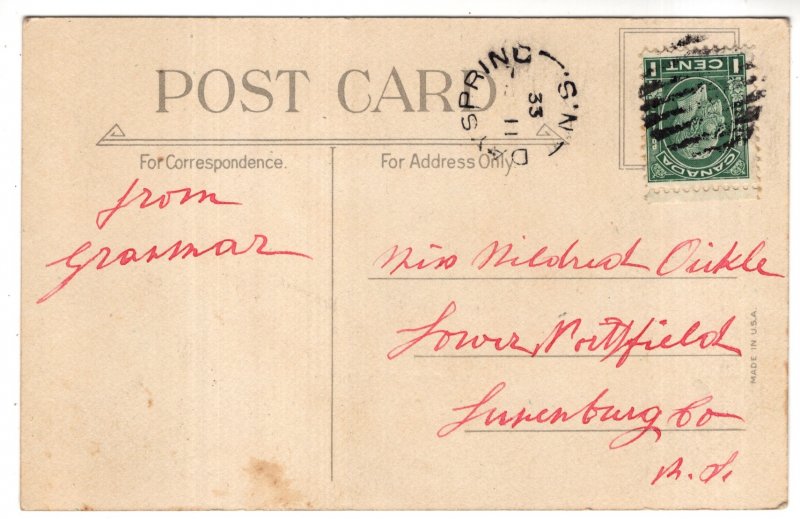 POST CARD
For Correspondence.
For Address Only.
DAYSPRING
N.S.
11
33
1 CENT 1
CANADA
from
Granmar
Miss Mildred Oickle
Lower Northfield
Lunenburg Co
N.S.
MADE IN U.S.A.